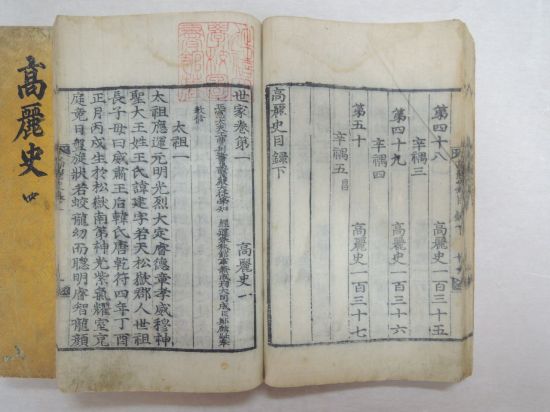 第四十八 高麗史一百三十五
辛禑三
第四十九 高麗史一百三十六
辛禑四
第五十 高麗史一百三十七
辛禑五 昌
高麗史目錄下
世家卷第一 高麗史一
正憲大夫工曹判書集賢殿大提學知 經筵春秋館事兼成均大司成臣鄭麟趾奉
教修
太祖一
太祖應運元明光烈大定睿德章孝威穆神
聖大王姓王氏諱建字若天松嶽郡人世祖
長子母曰威肅王后韓氏唐乾符四年丁酉
正月丙戌生於松嶽南第神光紫氣耀室充
庭竟日盤旋狀若蛟龍幼而聰明睿智龍顔
高麗史 四